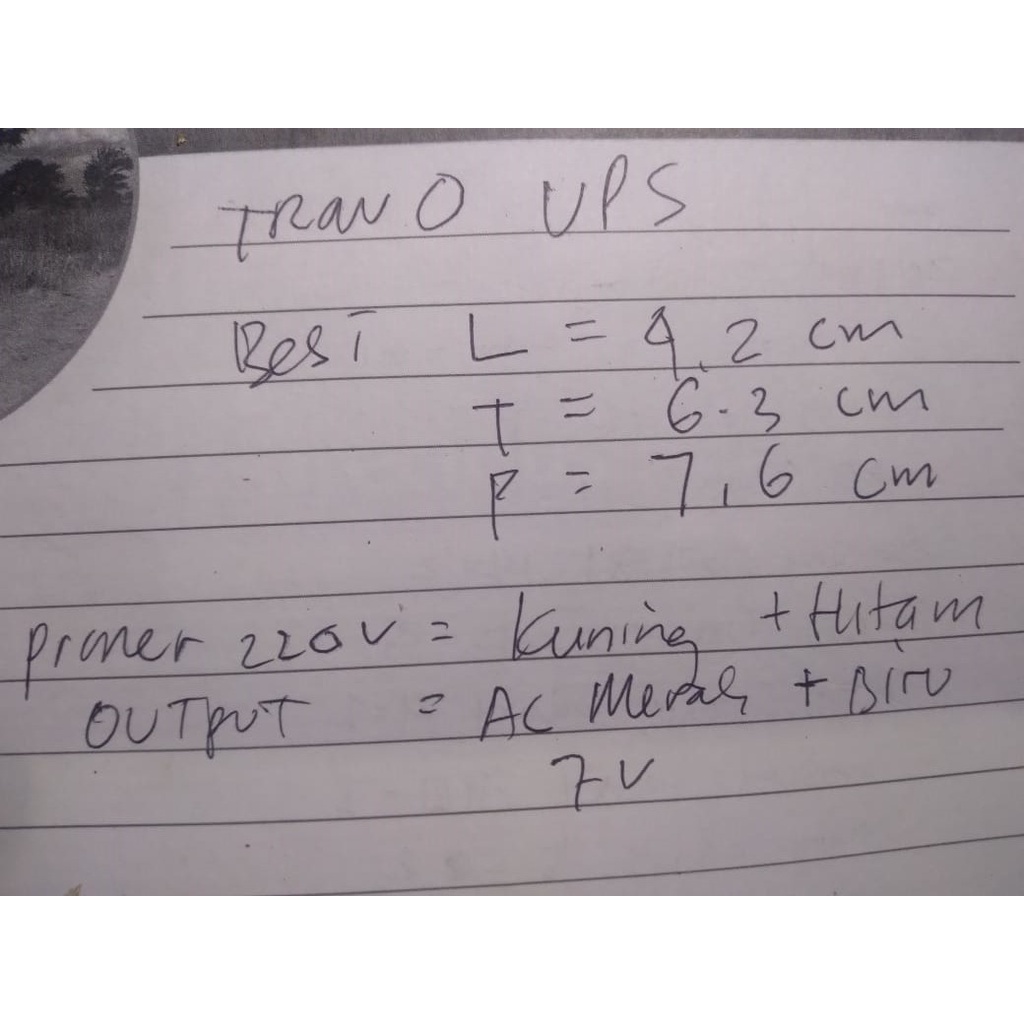 TRAVO UPS
Besi L = 4,2 cm
T = 6.3 cm
P = 7,6 cm
Primer 220V = Kuning + Hitam
OUTPUT = AC Merah + Biru
7V